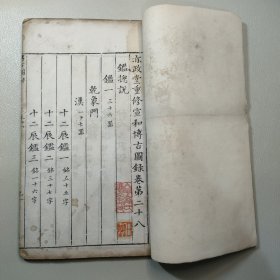 亦政堂重修宣和博古圖錄卷第二十八
鑑總說
鑑一 三十六器
乾象門
漢 一十七器
十二辰鑑一 銘三十五字
十二辰鑑二 銘三十七字
十二辰鑑三 銘一十六字